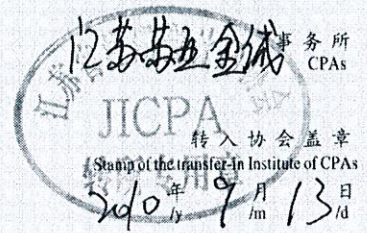 江苏苏亚金诚事务所
CPAs
JICPA
转入协会盖章
Stamp of the transfer-in Institute of CPAs
2010年9月13日
/y /m /d